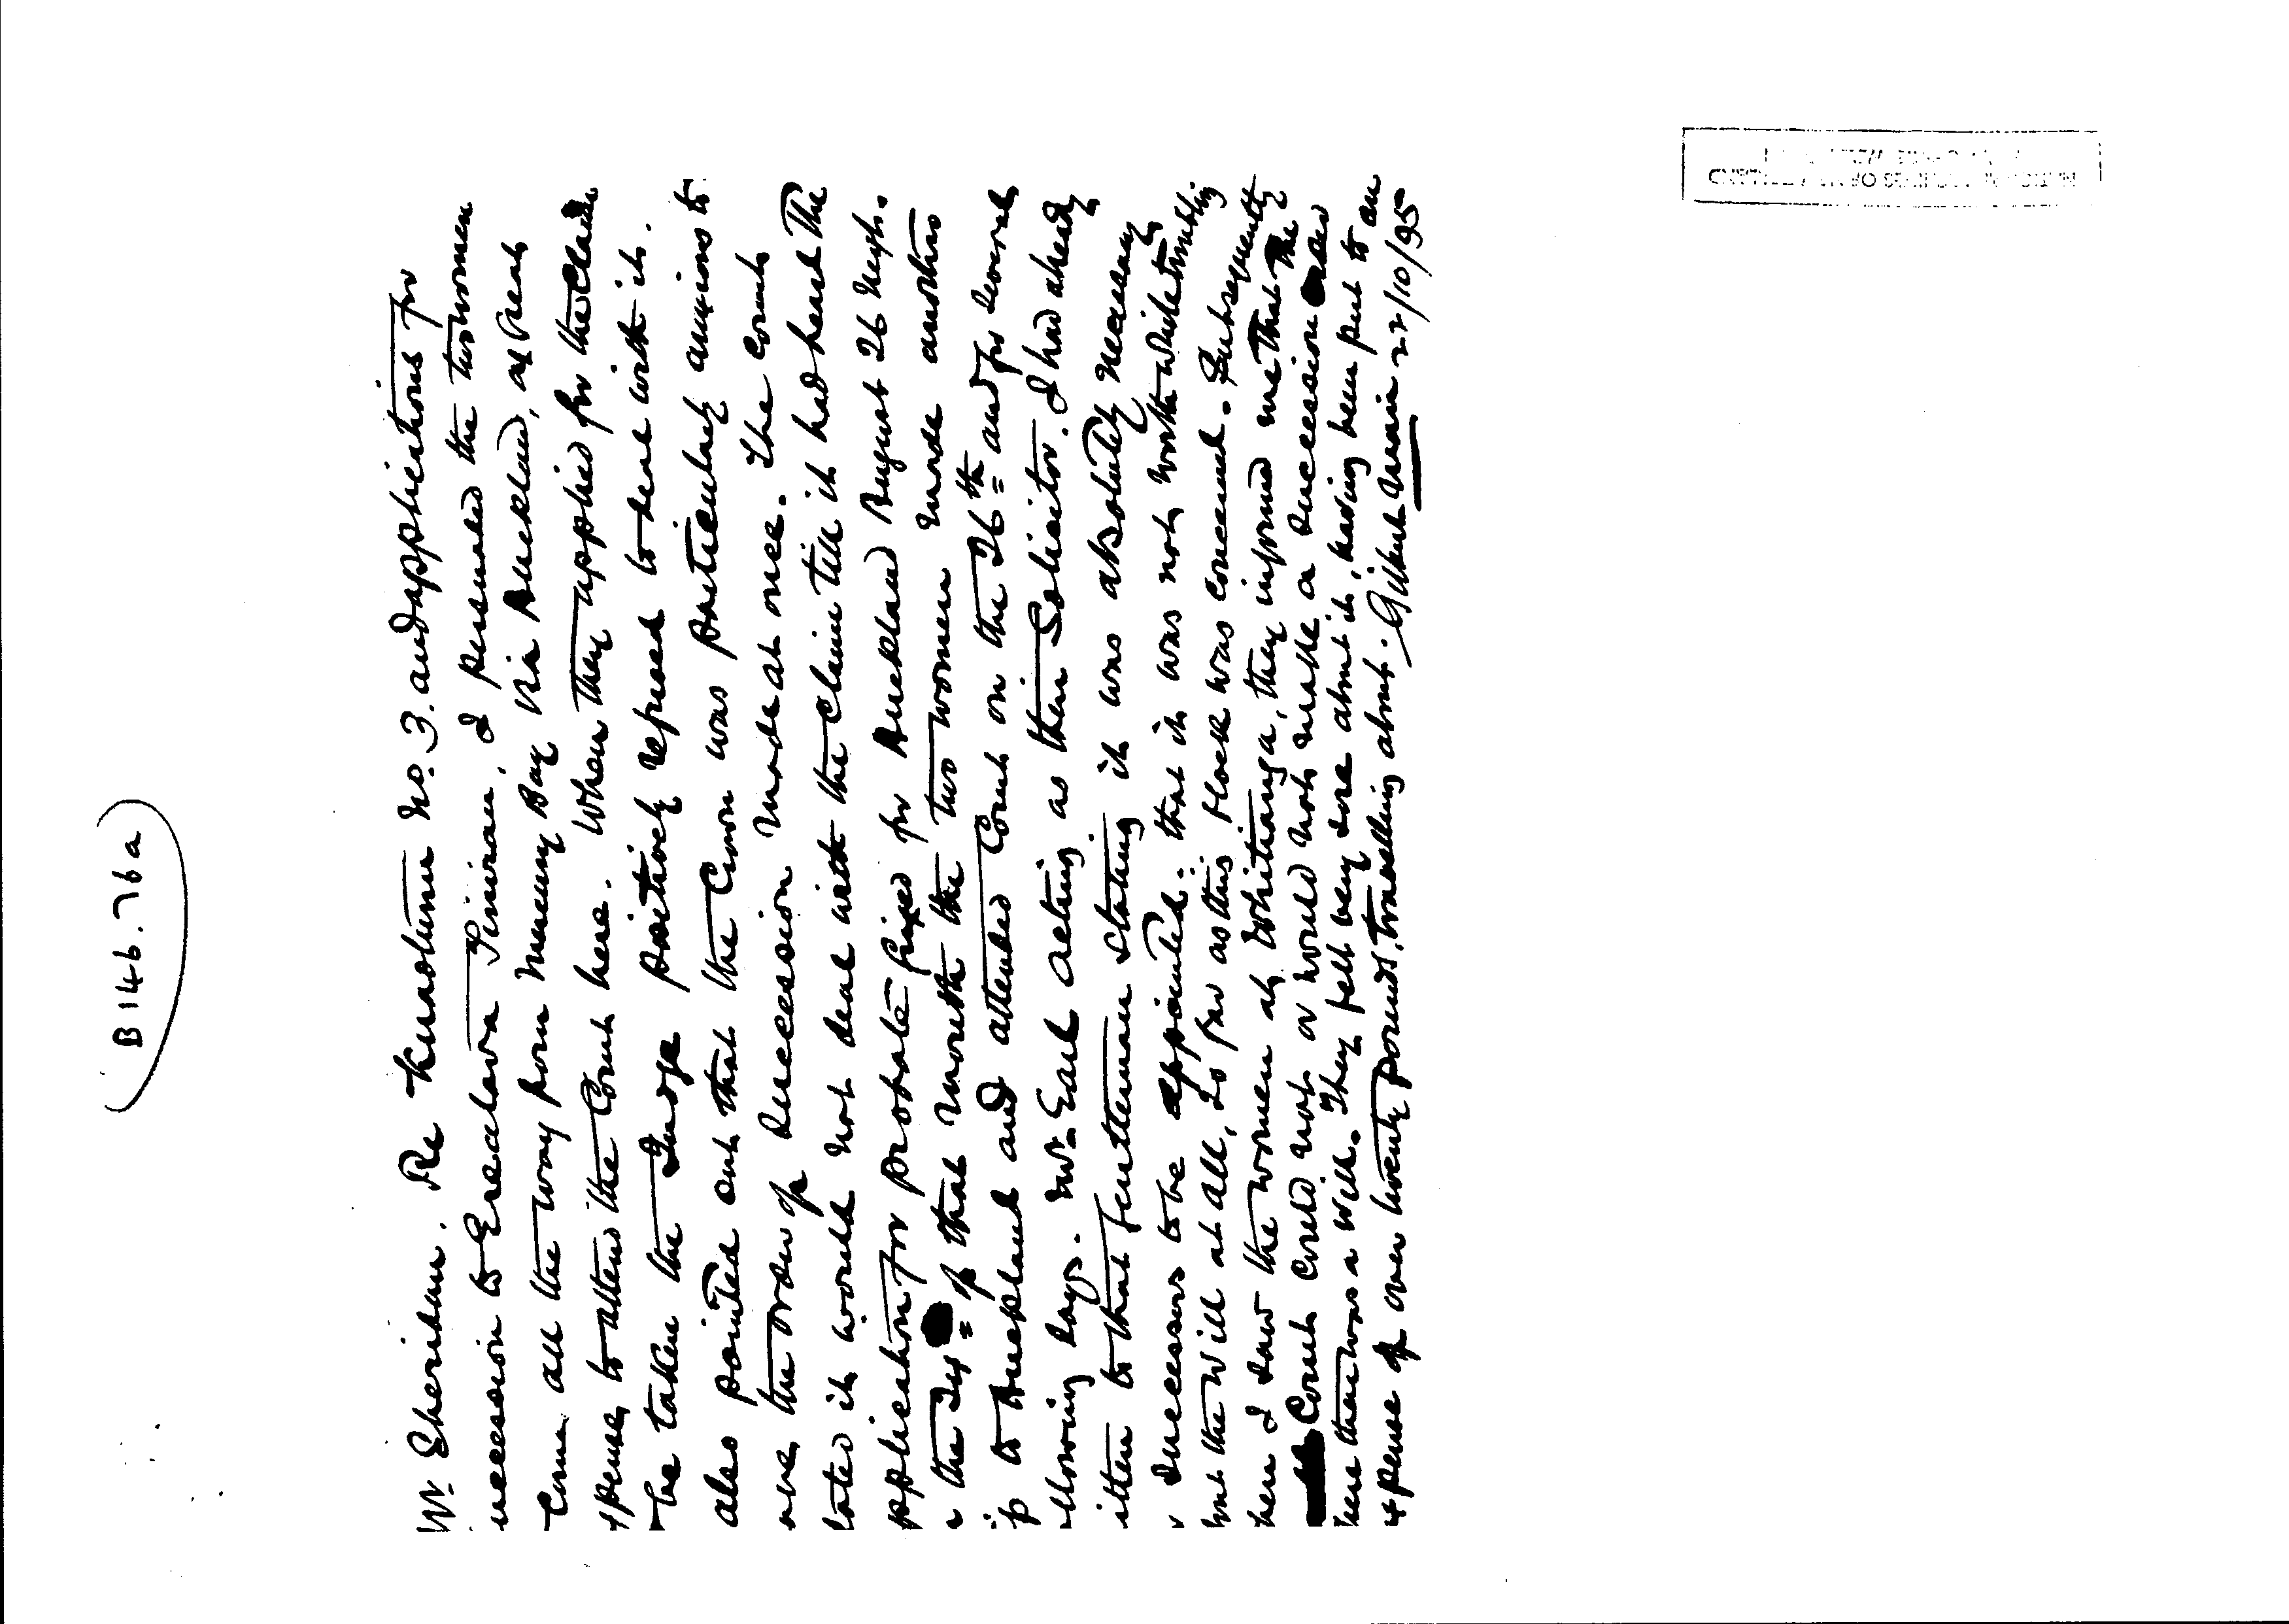 B 146.76a
Mr Sheridan. Re Kuaotunu No. 3. and applications for
uccession to Eraclava Pinirau, I persuaded the two women
come all the way from Mercury Bay via Auckland, at great
xpense, to attend the Court here. When they applied for the claim
be taken the Judge positively refused to deal with it.
also pointed out that the Crown was particularly anxious to
ave the order of succession made at once. The Court
tated it would not deal with the claim till it had heard the
pplication for probate fixed for Auckland August 26 next.
the of that month the two women made another
ip to Auckland and attended Court on the 26th and for several
ollowing days. Mr Earl acting as their Solicitor. I had already
itten to that Gentleman stating it was absolutely necessary
Successors to be appointed: that it was not worth while troubling
out the will at all, so far as this block was concerned. Subsequently
hen I saw the women at Whitianga, they informed me that the
Court could not or would not make a succession order
here there was a will. They felt very sore about it, having been put to an
xpense of over twenty pounds, travelling about. Gilbert Mair 22/10/95